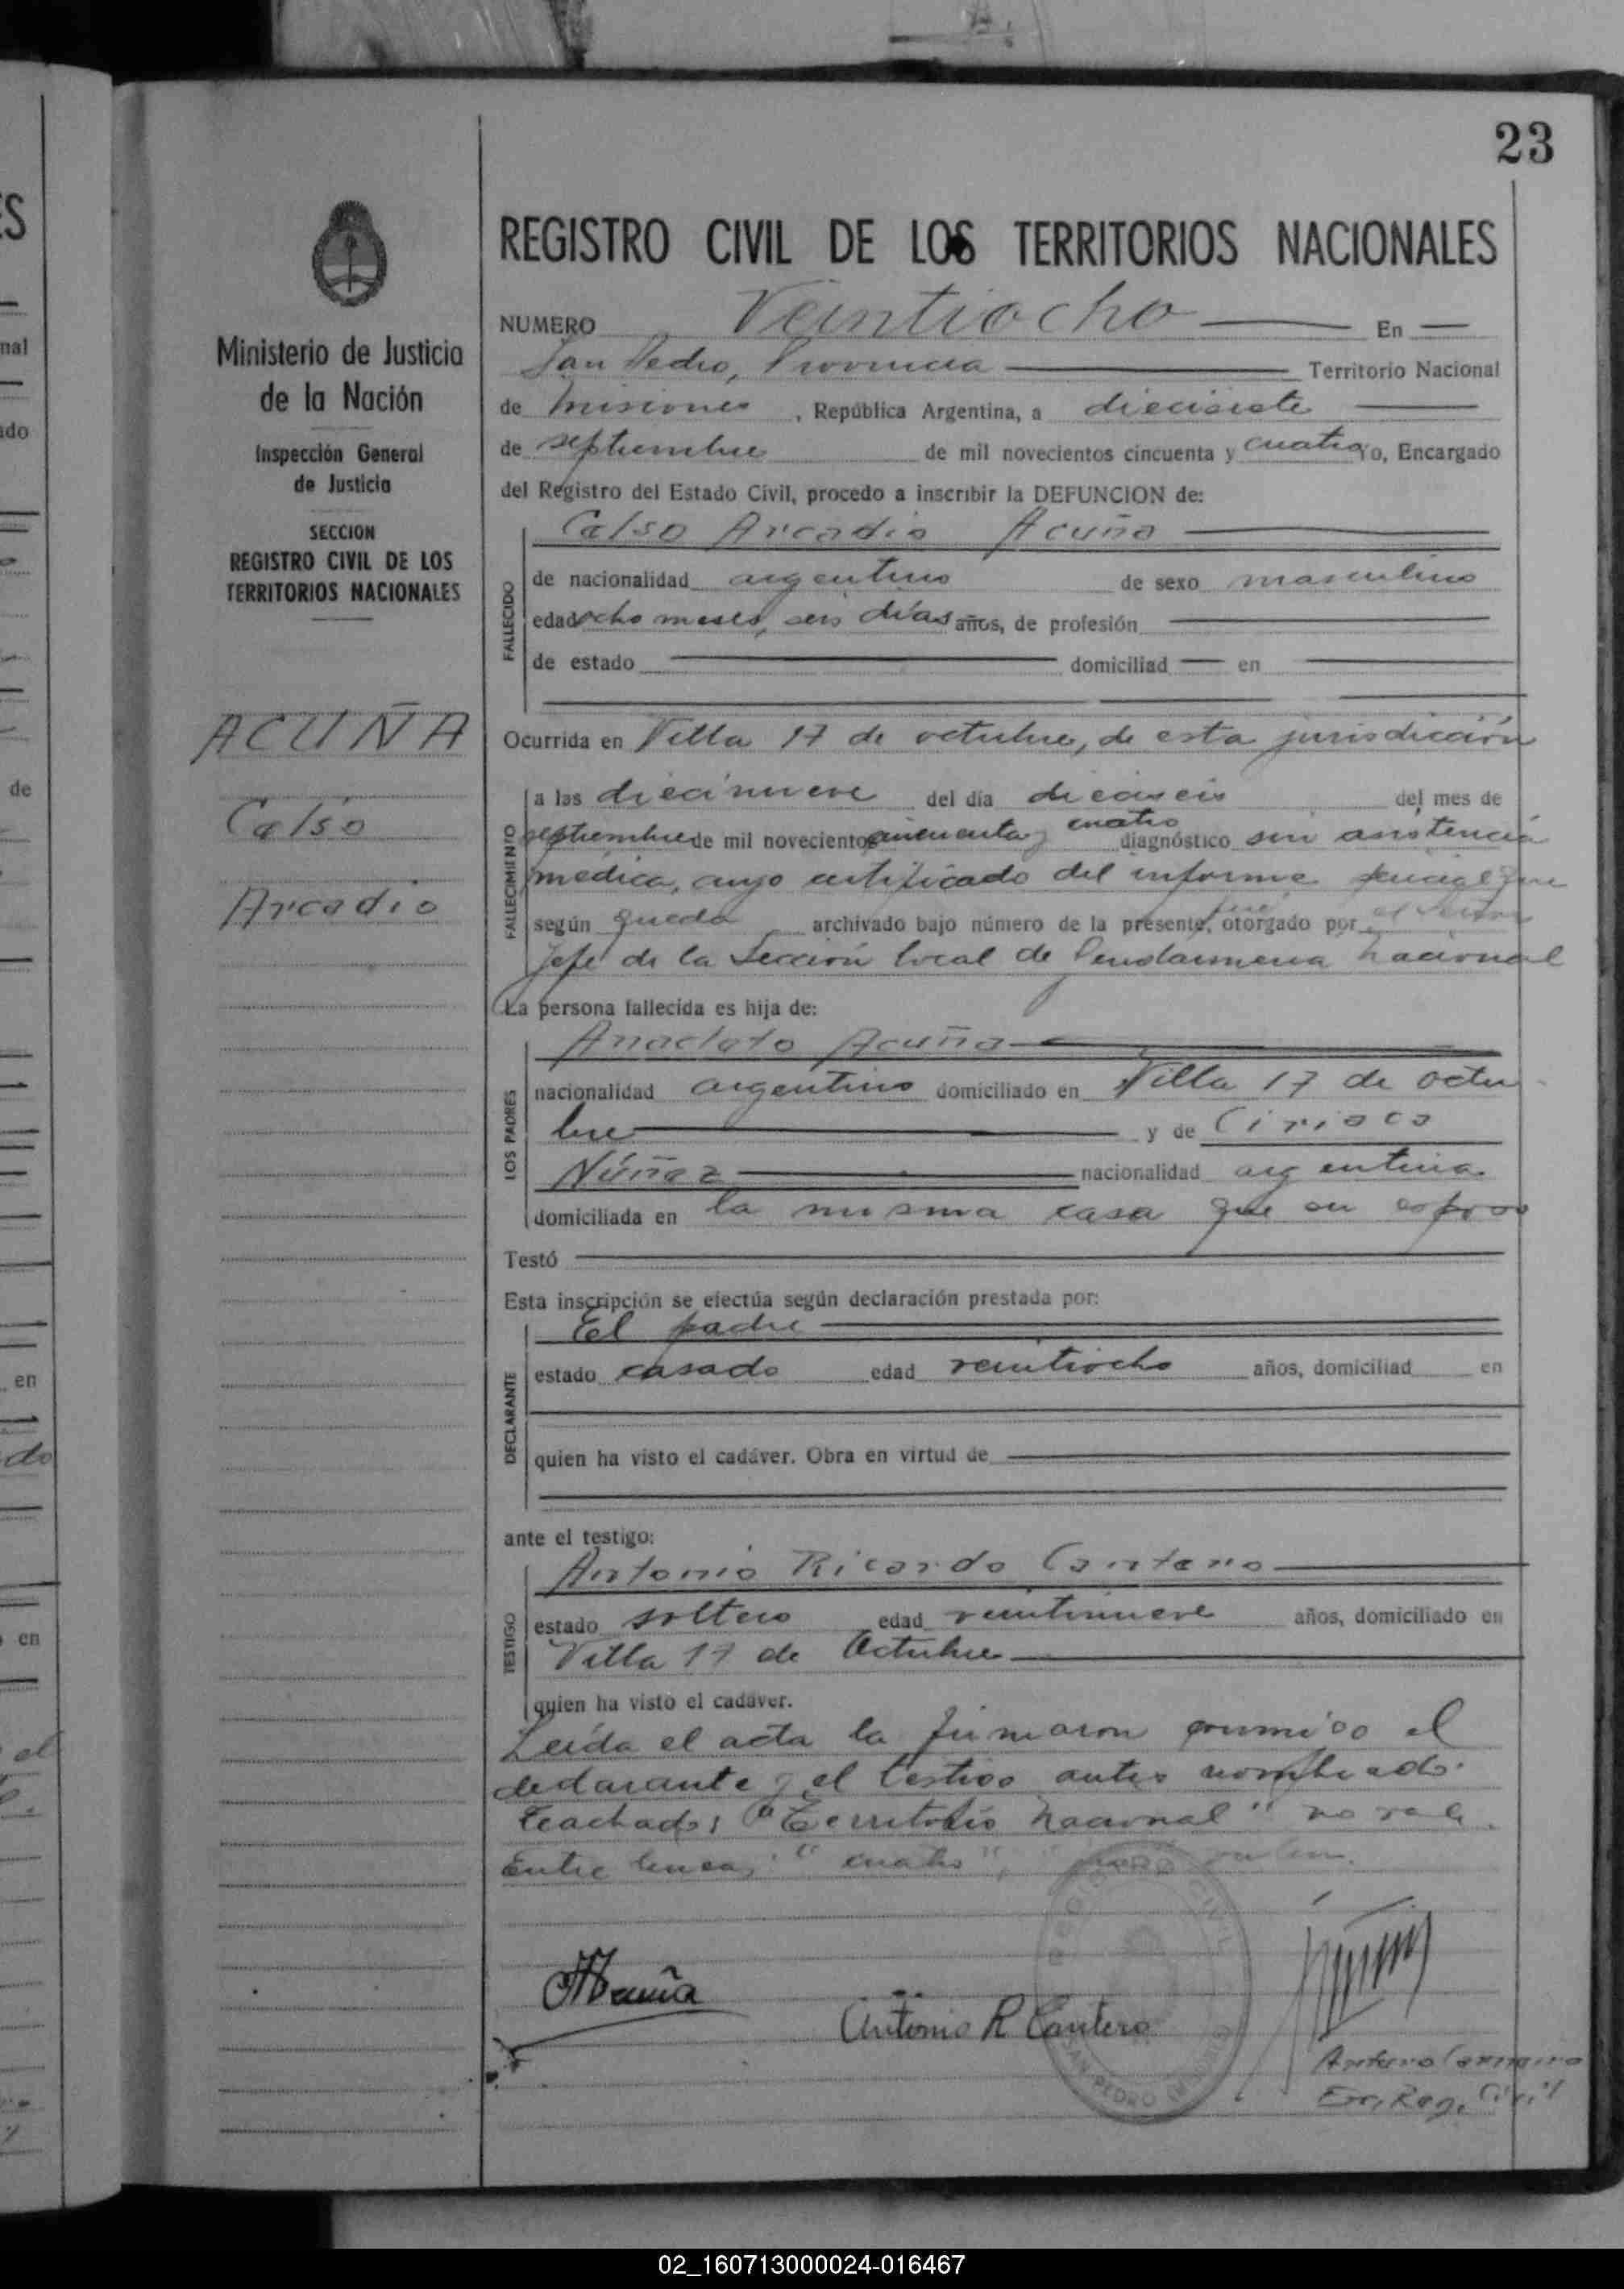 23
REGISTRO CIVIL DE LOS TERRITORIOS NACIONALES
Ministerio de Justicia
de la Nación
Inspección General
de Justicia
SECCION
REGISTRO CIVIL DE LOS
TERRITORIOS NACIONALES
ACUÑA
Celso
Arcadio
NUMERO Veintiocho En
San Pedro, Provincia Territorio Nacional
de Misiones, República Argentina, a diecisiete
de septiembre de mil novecientos cincuenta y cuatro Yo, Encargado
del Registro del Estado Civil, procedo a inscribir la DEFUNCION de:
Celso Arcadio Acuña
FALLECIDO
de nacionalidad argentino de sexo masculino
edad ocho meses, seis días años, de profesión
de estado domiciliad en
Ocurrida en Villa 17 de octubre, de esta jurisdicción
FALLECIMIENTO
a las diecinueve del día dieciseis del mes de
septiembre de mil novecientos cincuenta y cuatro diagnóstico sin asistencia
médica, cuyo certificado del informe que
según queda archivado bajo número de la presente, fué otorgado por el Señor
Jefe de la Sección local de Gendarmeria Nacional
La persona fallecida es hija de:
LOS PADRES
Anacleto Acuña
nacionalidad argentino domiciliado en Villa 17 de octu
bre y de Ciriaca
Núñez nacionalidad argentina
domiciliada en la misma casa que su esposo
Testó
Esta inscripción se efectúa según declaración prestada por:
DECLARANTE
El padre
estado casado edad veintiocho años, domiciliad en
quien ha visto el cadáver. Obra en virtud de
ante el testigo:
TESTIGO
Antonio Ricardo Cantero
estado soltero edad veintinueve años, domiciliado en
Villa 17 de Octubre
quien ha visto el cadáver.
Leída el acta la firmaron conmigo el
declarante y el testigo antes nombrado.
Teachado: "Territorio Nacional" no vale.
Entre lineas: "cuatro", valen.
Acuña
Antonio R Cantero
REGISTRO CIVIL
SAN PEDRO (MISIONES)
Enc. Reg. Civil
02_160713000024-016467